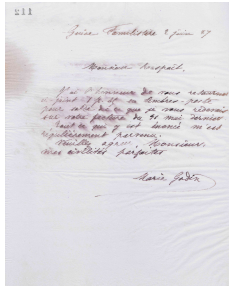 211
Guise Familistère 2 juin 87
Monsieur Raspail,
J'ai l'honneur de vous retourner
ci-joint 7 f. en timbres-poste
pour solde de ce que je vous redevais
sur votre facture du 31 mai dernier
Tout ce qui y est énoncé m'est
régulièrement parvenu.
Veuillez agréer, Monsieur,
mes civilités parfaites
Marie Godin